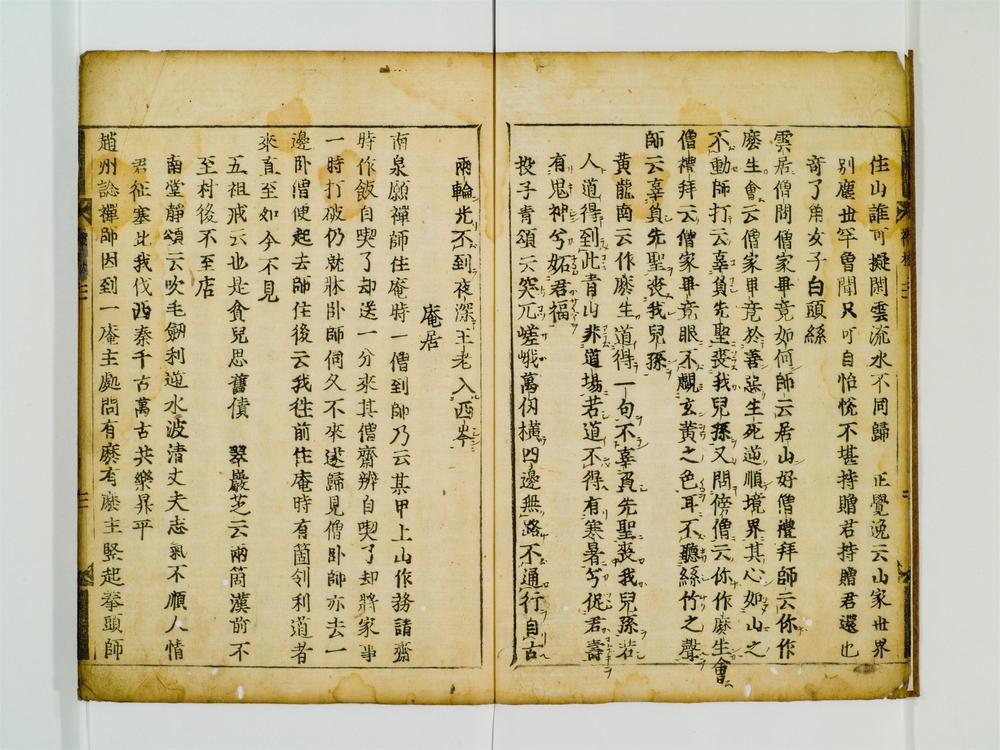 住山誰可擬閑雲流水不同歸　正覺逸云山家世界
別塵世罕曾聞只可自怡悅不堪持贈君持贈君還也
奇了角女子白頭絲
雲居僧問僧家畢竟如何師云居山好僧禮拜師云你作
麼生會云僧家畢竟於善惡生死逆順境界其心如山之
不動師打云辜負先聖喪我兒孫又問傍僧云你作麼生會
僧禮拜云僧家畢竟眼不觀玄黃之色耳不聽絲竹之聲
師云辜負先聖喪我兒孫
黃龍南云作麼生道得一句不辜負先聖喪我兒孫若
人道得到此青山非道場若道不得有寒暑兮促君壽
有鬼神兮妬君福
投子青頌云突兀嵯峨萬仞橫四邊無路不通行自古
兩輪光不到夜深王老入西岑
庵居
南泉願禪師住庵時一僧到師乃云某甲上山作務請齋
時作飯自喫了却送一分來其僧齋辨自喫了却將家事
一時打破仍就牀卧師伺久不來遂歸見僧卧師亦去一
邊卧僧便起去師住後云我往前住庵時有箇伶利道者
來直至如今不見
五祖戒云也是貪兒思舊債　翠巖芝云兩箇漢前不
至村後不至店
南堂靜頌云吹毛劒利逆水波清丈夫志氣不順人情
君征塞北我伐西秦千古萬古共樂昇平
趙州諗禪師因到一庵主處問有麼有麼主竪起拳頭師